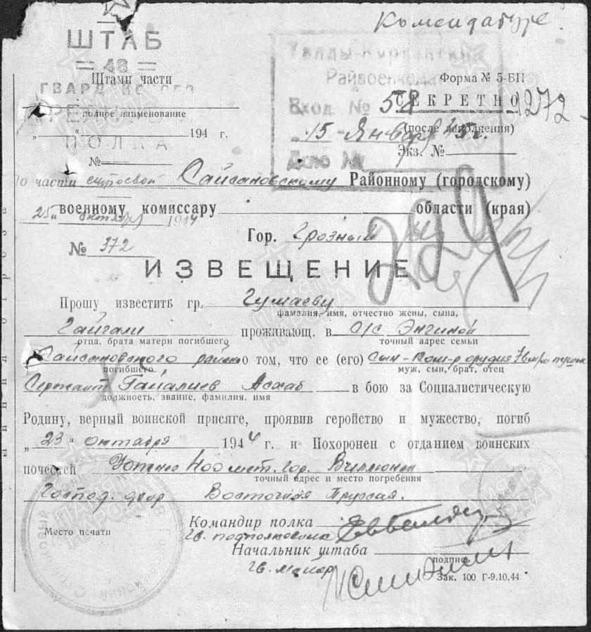 Комендатуре.
ШТАБ
48
Штамп части
ГВАРД.
Райвоенкома
Форма № 5-БП
Вход. №
СЕКРЕТНО
272
полное наименование
194 г.
15 Январ
(после заполнения)
ПОЛКА
Дело №
Экз. №
№
По части
Сайсановскому Районному (городскому)
25 октября 1944
военному комиссару области (края)
№ 372
Гор. Грозный
229
ИЗВЕЩЕНИЕ
Прошу известить гр. Гумаеву
фамилия, имя, отчество жены, сына,
Гайгали проживающ. в О/с Энгиной
отца, брата матери погибшего
точный адрес семьи
Сайсановского района о том, что ее (его) сын
погибшего
муж, сын, брат, отец
Сержант Гайалиев Асхаб в бою за Социалистическую
должность, звание, фамилия, имя
Родину, верный воинской присяге, проявив геройство и мужество, погиб
„23" октября 1944 г. и Похоронен с отданием воинских
почестей Южнее 400 мет. гор.
точный адрес и место погребения
Господ. двор Восточная Пруссия.
Место печати
Командир полка
Гв. подполковник
Начальник штаба
Гв. майор
подпись
Зак. 100 Г-9.10,44